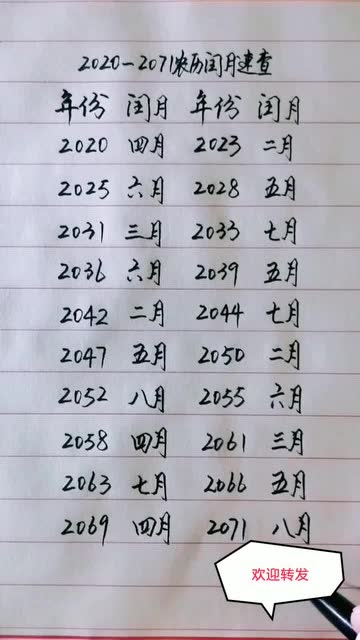 2020-2071农历闰月速查
年份 闰月 年份 闰月
2020 四月 2023 二月
2025 六月 2028 五月
2031 三月 2033 七月
2036 六月 2039 五月
2042 二月 2044 七月
2047 五月 2050 二月
2052 八月 2055 六月
2058 四月 2061 三月
2063 七月 2066 五月
2069 四月 2071 八月
欢迎转发